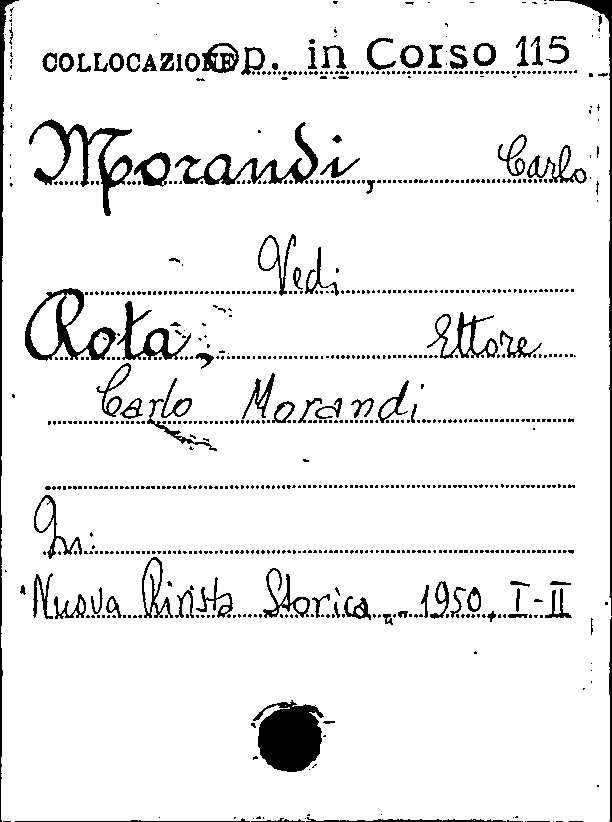 COLLOCAZIONE Op. in Corso 115
Morandi, Carlo
Vedi
Rota, Ettore
Carlo Morandi
In:
"Nuova Rivista Storica„ - 1950, I-II